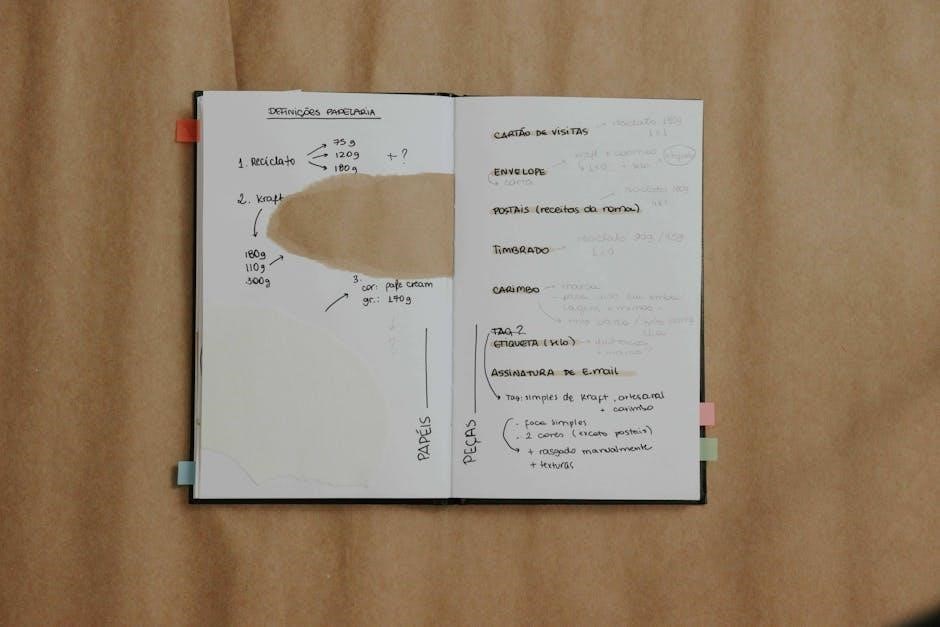 DEFINIÇÕES PAPELARIA
1. Reciclato
75g
120g
180g
+ ?
2. Kraft
180g
110g
300g
3.
cor: cream
gr.: 170g
?
PAPÉIS
CARTÃO DE VISITAS → reciclato 180g
ENVELOPE → kraft + carimbo
carta
POSTAIS (receitas da noma) reciclato 180g
TIMBRADO → reciclato 90g / 75g
CARIMBO → marca
TAG ?
ETIQUETA (selo)
ASSINATURA DE E.mail
Tag: simples de Kraft, artesanal
+ carimbo
- faca simples
- 2 cores (exceto postais)
+ rasgado manualmente
+ texturas
PEÇAS